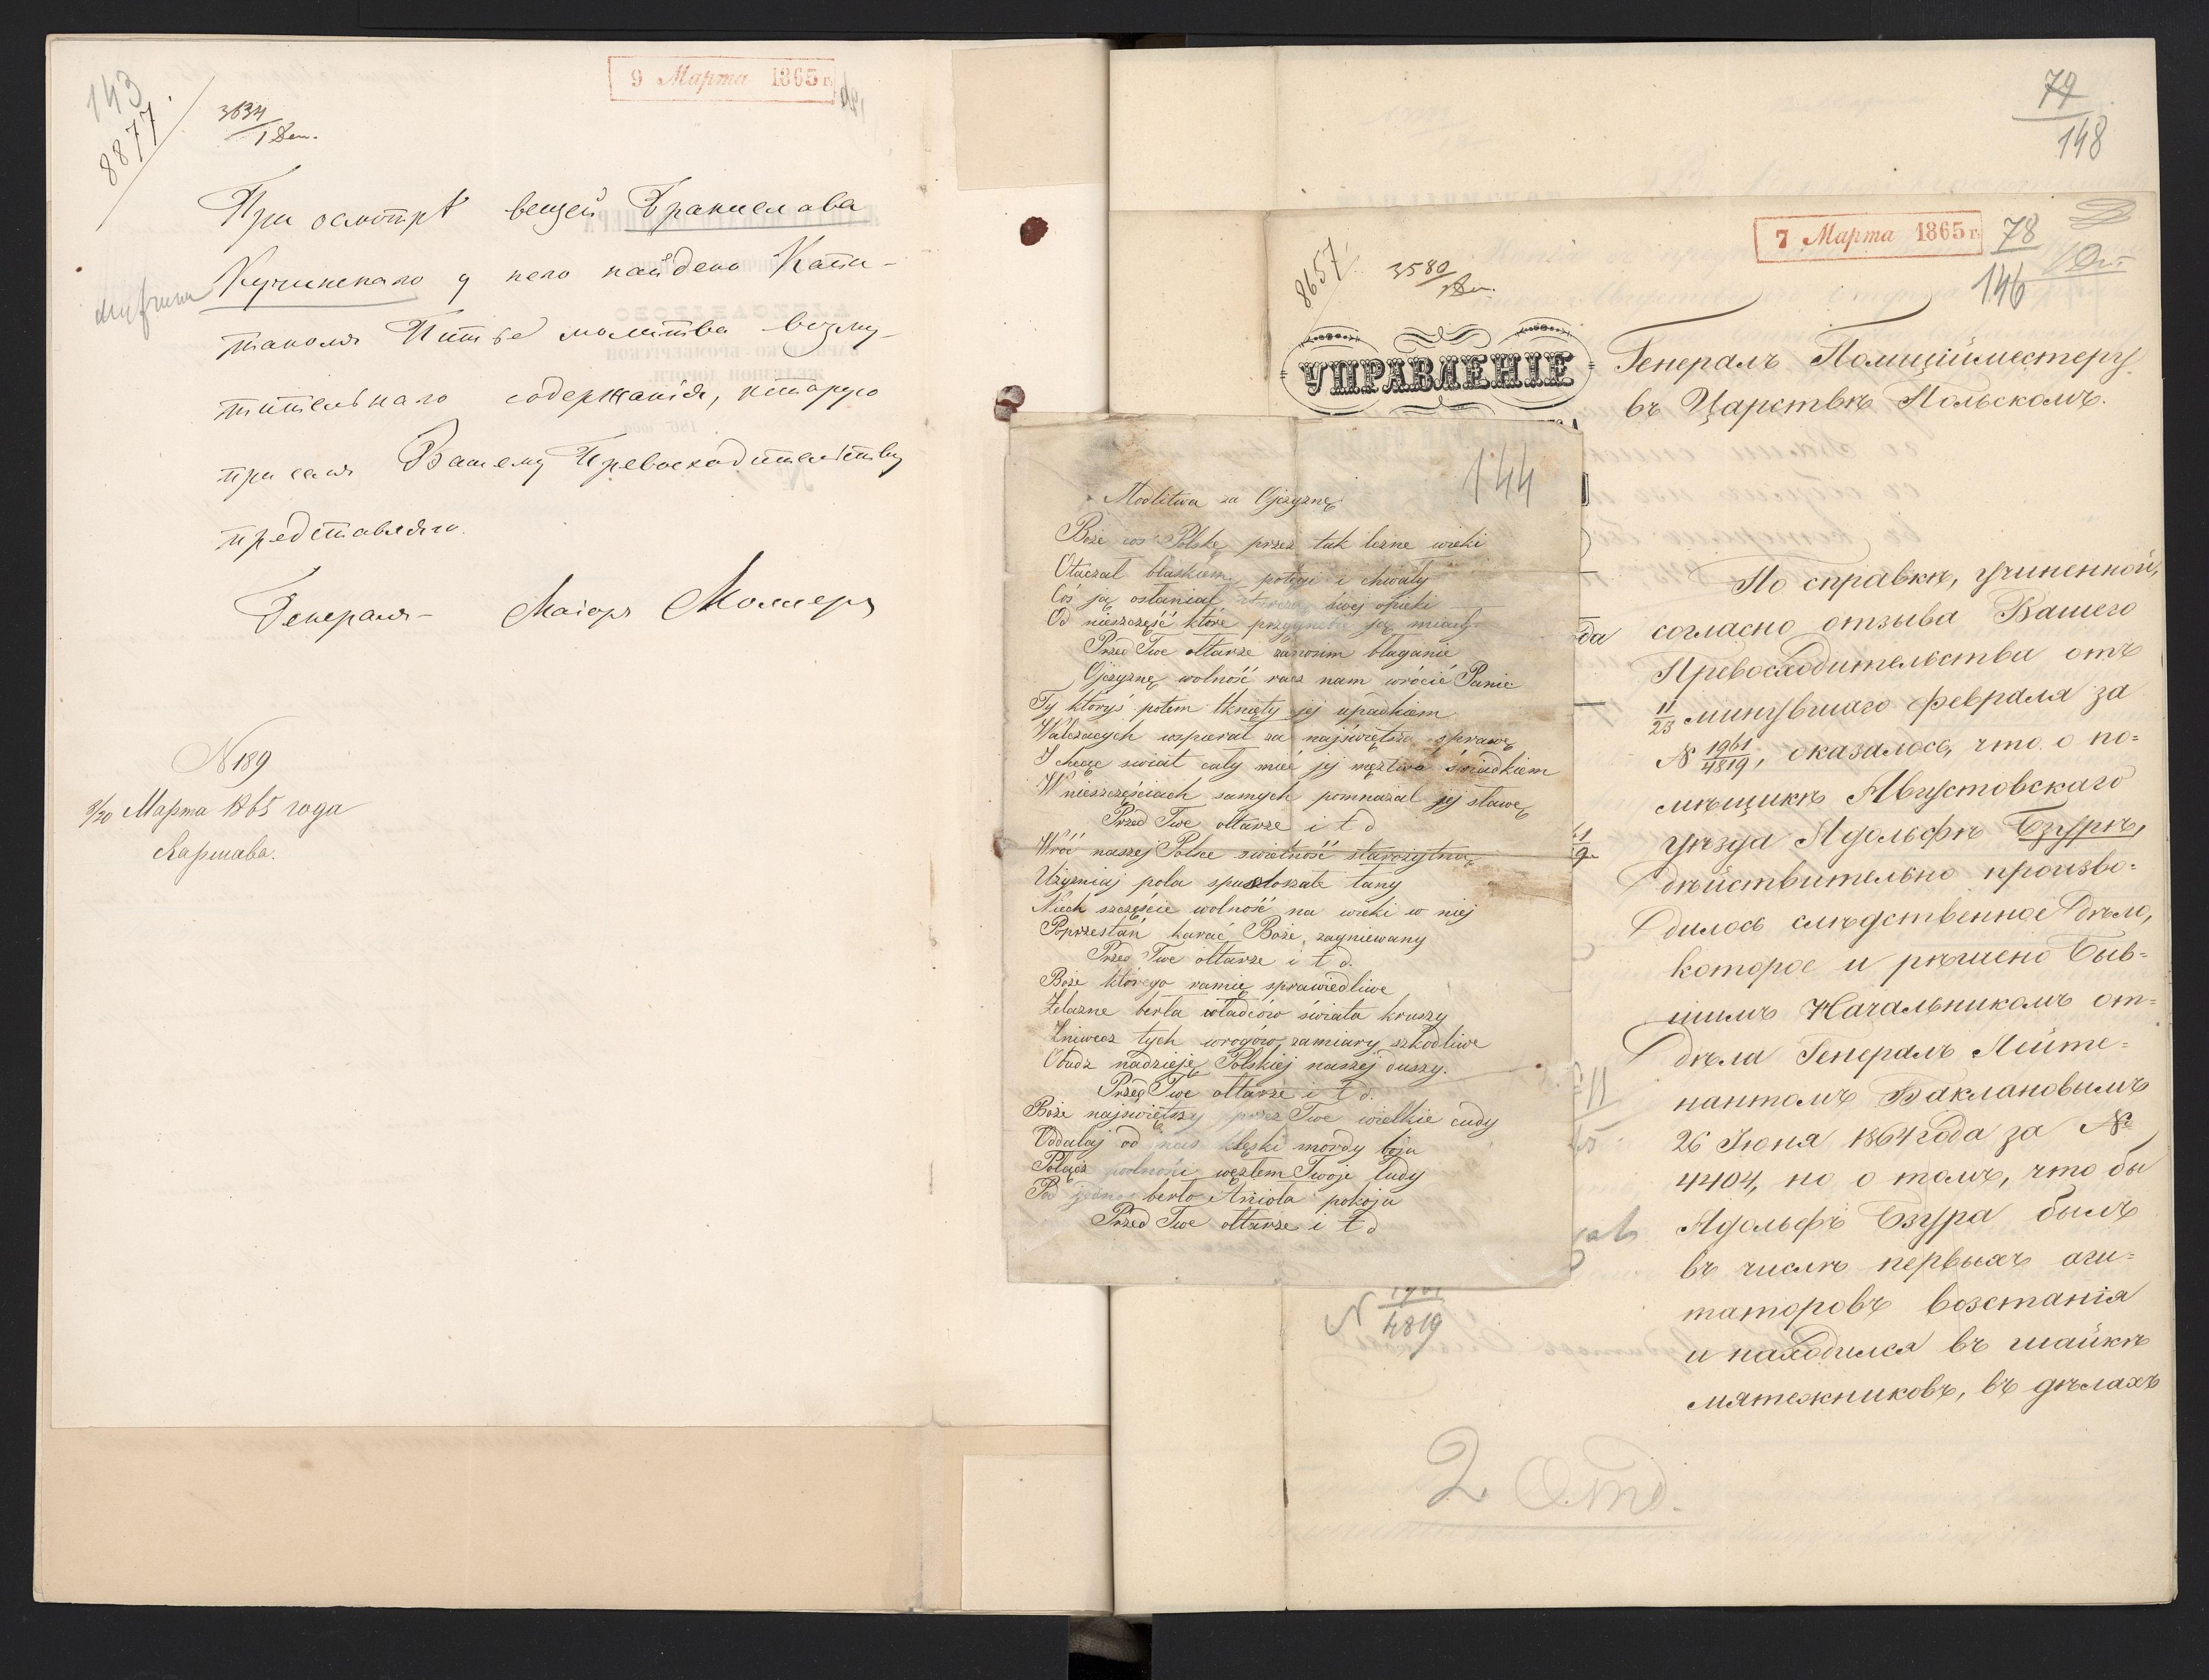 143
8877.
3634
1 Эт.
9 Марта 1865 г.
При осмотрѣ вещей Бранислава
Кучинскаго у него найдено Капи-
таномъ Питье молитва возму-
тительнаго содержанія, которую
при семъ Вашему Превосходительству
представляю.
Генералъ-Маіоръ
N 189
8/20 Марта 1865 года
Варшава.
144
Modlitwa za Ojczyznę
Boże coś Polskę przez tak liczne wieki
Otaczał blaskiem potęgi i chwały
Coś ją osłaniał tarczą swej opieki
Od nieszczęść które przygnębić ją miały
Przed Twe ołtarze zanosim błaganie
Ojczyznę wolność racz nam wrócić Panie
Ty któryś potem tknięty jej upadkiem
Walczących wspierał za najświętszą sprawę
I chcąc świat cały mieć jej męztwa świadkiem
W nieszczęściach samych pomnażał jej sławę
Przed Twe ołtarze i t d
Wróć naszej Polsce świetność starożytną
Użyźniaj pola spustoszałe łany
Niech szczęście wolność na wieki w niej
Poprzestań karać Boże zagniewany
Przed Twe ołtarze i t d.
Boże którego ramię sprawiedliwe
Żelazne berła władców świata kruszy
Zniwecz tych wrogów zamiary szkodliwe
Obudz nadzieję Polskiej naszej duszy.
Przed Twe ołtarze i t d.
Boże najświętszy przez Twe wielkie cudy
Oddalaj od nas klęski mordy boju
Połącz wolności węzłem Twoje ludy
Pod jedno berło Anioła pokoju
Przed Twe ołtarze i t d
79
148
7 Марта 1865 г.
78
146
8657
3580
УПРАВЛЕНІЕ
Генералъ Полиціймейстеру
въ Царствѣ Польскомъ.
По справкѣ, учиненной,
согласно отзыва Вашего
Превосходительства отъ
11/23 минувшаго февраля за
№ 1961/4819, оказалось, что о по=
мѣщикѣ Августовскаго
уѣзда Адольфѣ Бзурѣ,
дѣйствительно произво=
дилось слѣдственное дѣло,
которое и рѣшено быв=
шимъ Начальникомъ от=
дѣла Генералъ Лейте=
нантомъ Баклановымъ
26 Іюня 1864 года за №
4404, но о томъ, что бы
Адольфъ Бзура былъ
въ числѣ первыхъ аги=
таторовъ возстанія
и находился въ шайкѣ
мятежниковъ, въ дѣлахъ
N
4819
2 Отд.